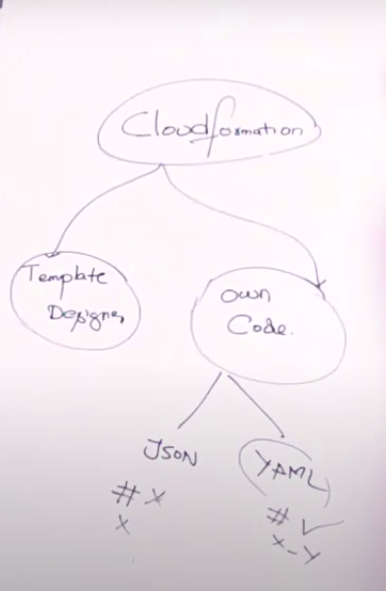 Cloudformation
Template
Designer
own
Code.
JSON
YAML
# x
# ✓
x
x-y